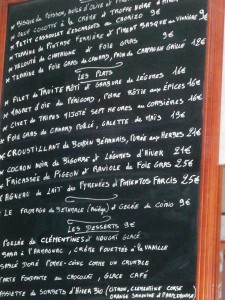 * Bisque de Poisson, Rouille d'Olive et
* Oeuf Cocotte à la Crème et Truffe Noire
* Petit Cassolet d'Escargots au Chorizo 9€
* Terrine de Pintade Fermière et Piment Basque au Vinaigre 9€
* Velouté de Châtaigne et Foie Gras 9€
* Terrine de Foie Gras de Canard, Pain de Campagne Grillé 12€
Les Plats
* Filet de Truite Rôti et Garbure de Légumes 16€
* Magret d'Oie du Périgord, Poire Rôtie aux Épices 16€
* Civet de Tripes Mijoté Sept Heures aux Corbières 16€
* Foie Gras de Canard Poêlé, Galette de Maïs 19€
* Croustillant de Boudin Béarnais, Purée aux Herbes 21€
* Cochon Noir de Bigorre et Légumes d'Hiver 21€
* Fricassée de Pigeon et Raviole de Foie Gras 25€
* Agneau de Lait des Pyrénées et Pimientos Farcis 25€
* Le Fromage de Bethmale (Ariège) et Gelée de Coing 9€
Les Desserts 9€
Poêlée de Clémentines et Nougat Glacé
Baba à l'Armagnac, Crème Fouettée à la Vanille
Sablé Doré Poire-Coing Comme un Crumble
Tarte Fondante au Chocolat, Glace Café
Assiette de Sorbets d'Hiver Bio (Citron, Clémentine Corse
Orange Sanguine et Pamplemousse)